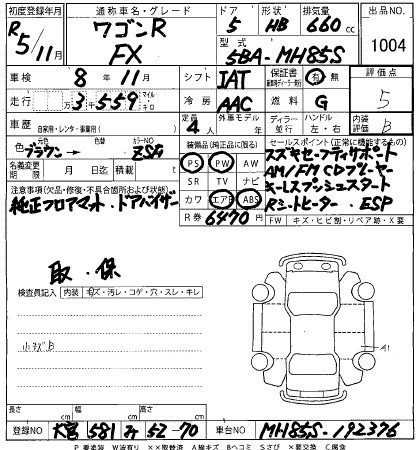 初度登録年月 通称車名・グレード ドア 形状 排気量 出品NO
R5/11月 ワゴンR FX 5 HB 660cc 1004
型式 5BA-MH85S
車検 8年11月 シフト IAT 保証書 有 無 評価点 5
走行 3千559 マイル キロ 冷房 AAC 燃料 G 内装評価 B
車歴 自家用・レンタ・事業用( ) 定員 4人 外車モデル ディーラー 並行 ハンドル 左・右
色 元色 ブラウン→ 色替 カラーNO ZSG
装備品(純正品に限る) セールスポイント(正常に機能するもの)
名義変更期限 月 日迄 積載 t
PS PW スズキセーフティサポート
SR TV ナビ AM/FM CDプレーヤー
カワ エアB ABS キーレスプッシュスタート
Rシートヒーター ESP
注意事項(欠品・修復・不具合箇所および状態)
純正フロアマット・ドアバイザー
R券 6470円 FW キズ・ヒビ割・リペア跡・X要
取・保
検査員記入 内装 キズ・汚レ・コゲ・穴・スレ・キレ
小キズB
A1
長さ cm 幅 cm 高さ cm
登録NO 大宮 581 み 52-70 車台NO MH85S-192376
P 要塗装 W波有り ××取替済 A線キズ Bヘコミ Sさび ×要交換 C腐食